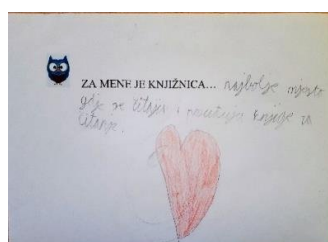 ZA MENE JE KNJIŽNICA... najbolje mjesto
gdje se čitaju i posuđuju knjige za
čitanje.